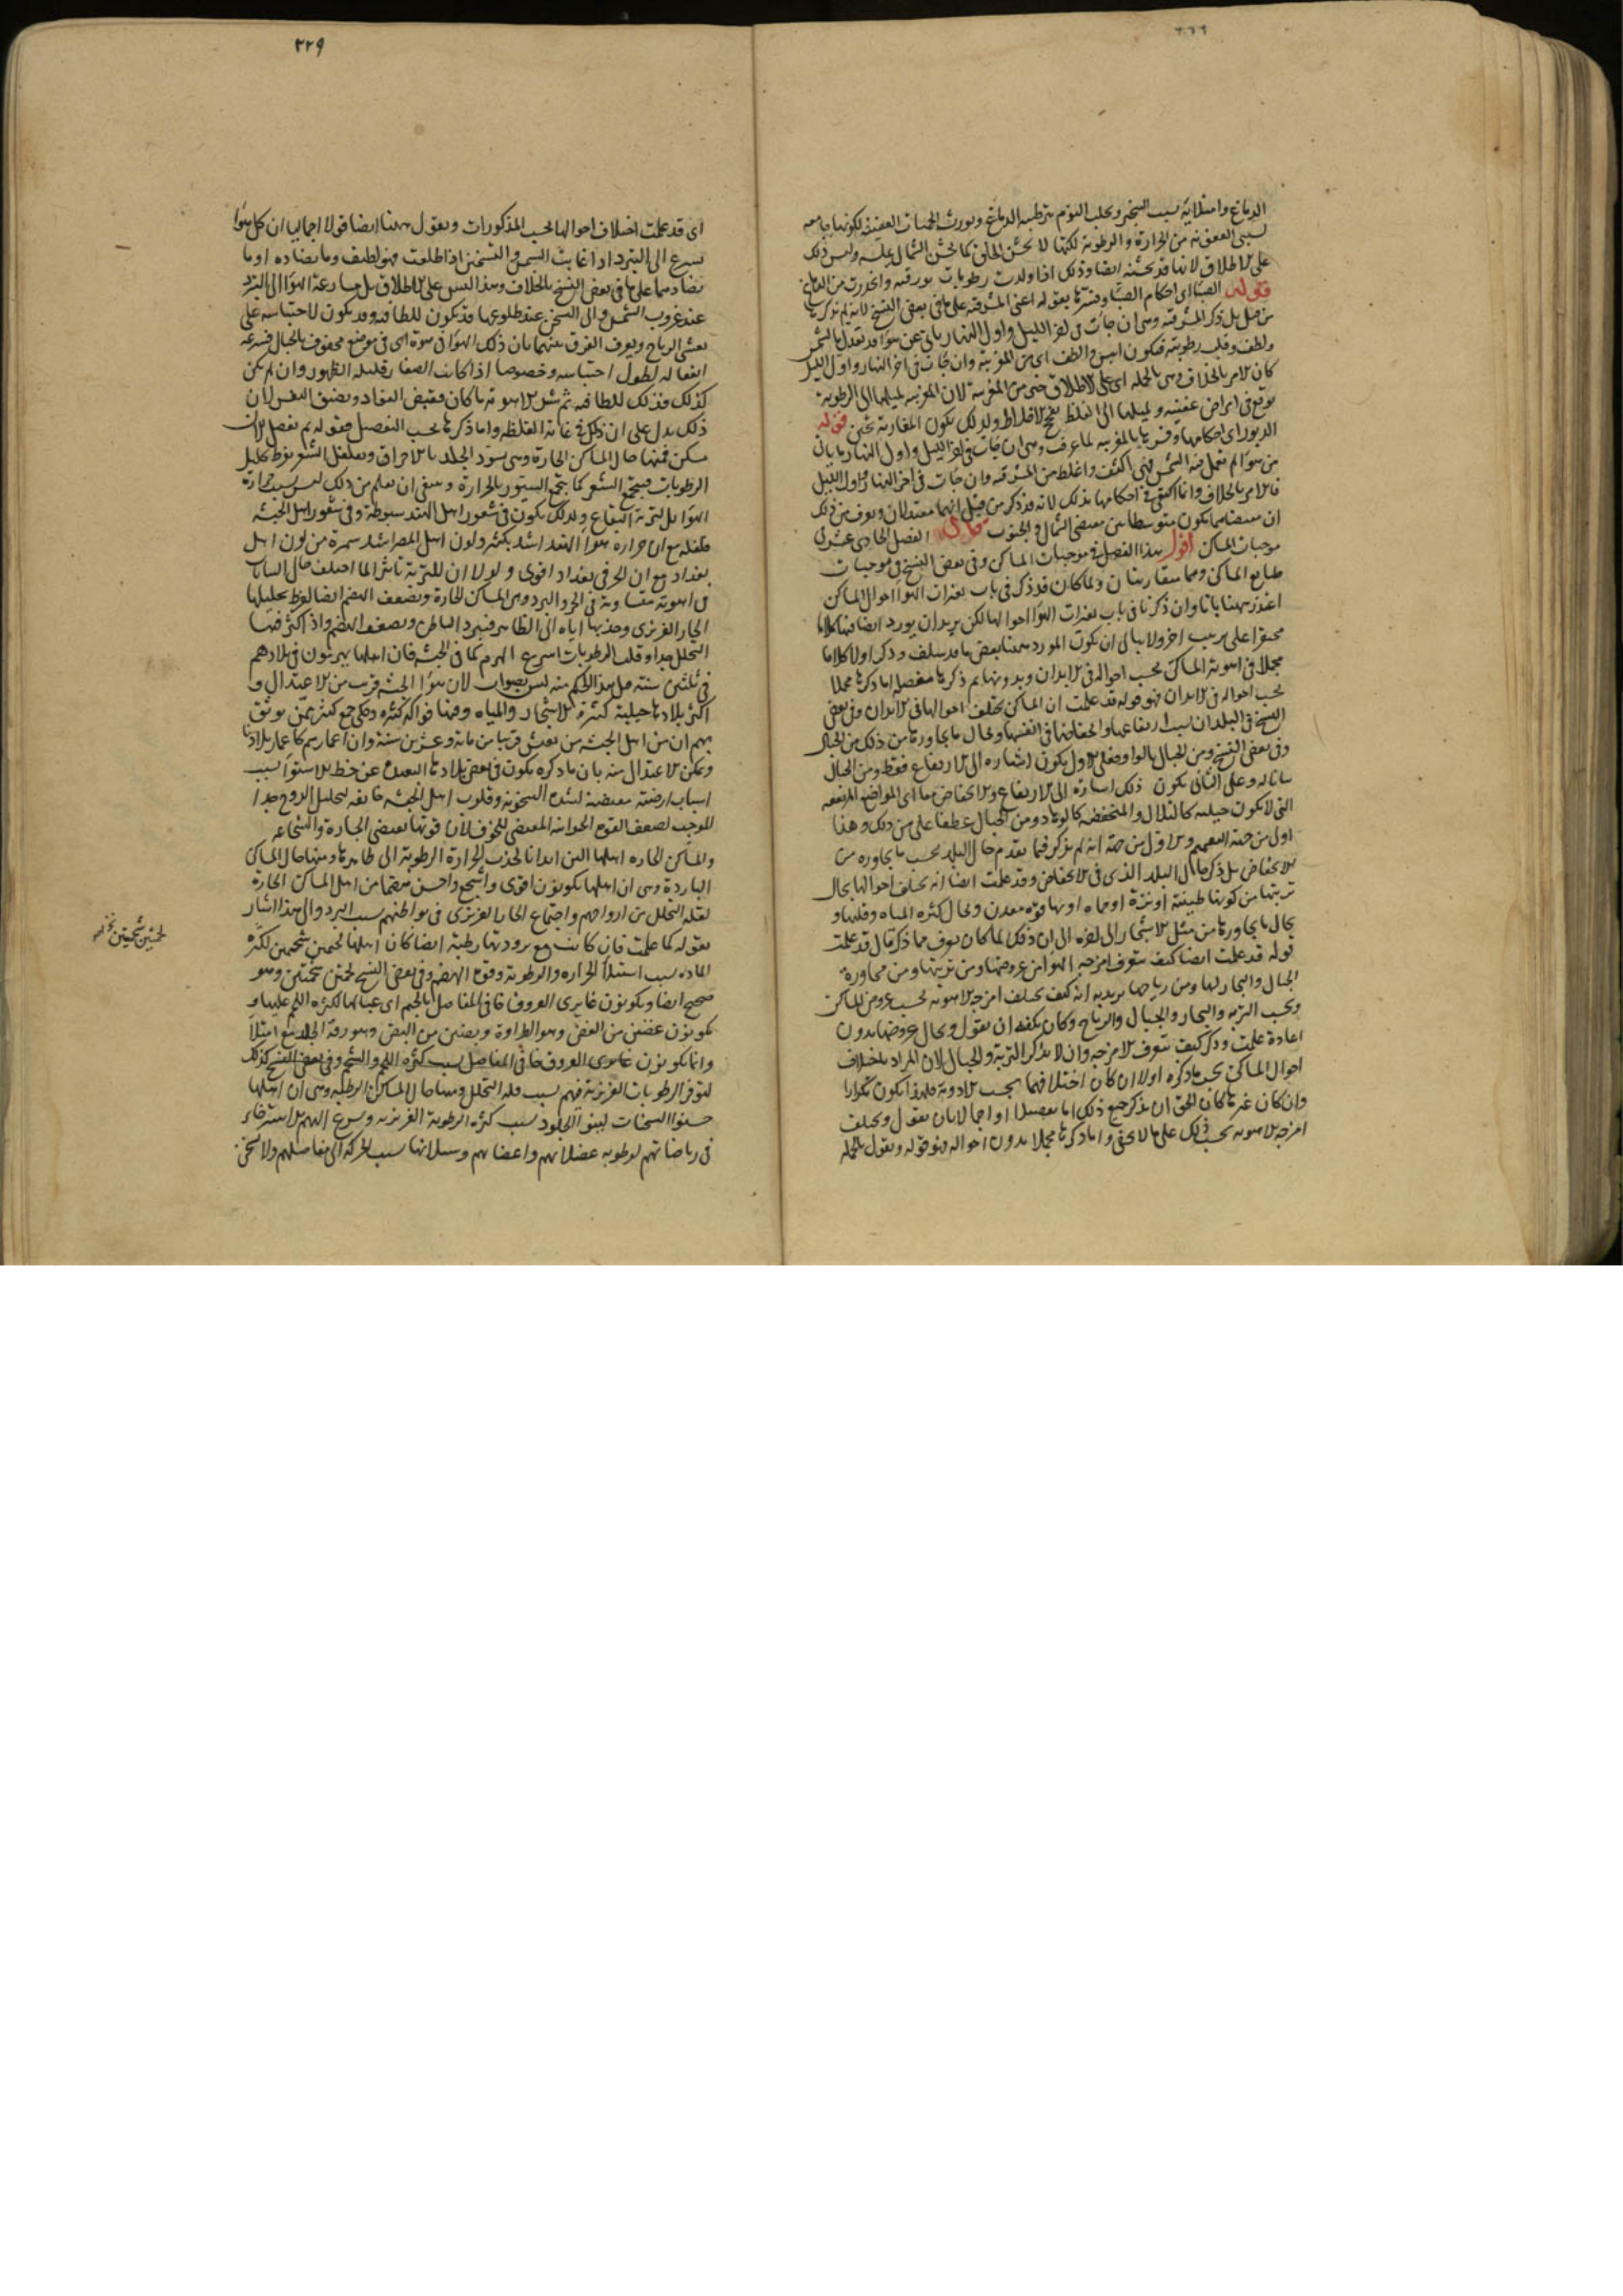 الدماغ وامتلائه بسبب التبخير ويجلب النوم بترطيبه الدماغ ويورث الحميات العفنة لكونها جامعة
لسببى العفونة من الحرارة والرطوبة لكنها لا تخشن الحلق كما تخشن الشمال عليه وليس ذلك
على الاطلاق لانها قد تخشنه ايضا وذلك اذا ولدت رطوبات بورقية وانحدرت من الدماغ
قوله الصبا اى احكام الصبا وفسرها بقوله اعنى المشرقية على ما فى بعض النسخ لانه لم يذكرها
من قبل بل ذكر المشرقية وهى ان جات فى اخر الليل واول النهار ياتى عن هوا قد تعدل بالشمس
ولطف وقلت رطوبته فيكون ايبس والطف اى من المغربية وان جات فى اخر النهار واول الليل
كان الامر بالخلاف وهى بالجملة اى على الاطلاق خير من المغربية لان المغربية لميلها الى الرطوبة
توقع فى امراض عفنة ولميلها الى الغلظ الاخلاط ولذلك يكون المغاربة قوله
الدبور اى احكامها وفسرها بالمغربية لما عرفت وهى ان جات فى اخر الليل واول النهار ياتى
من هوا لم تعمل فيه الشمس فهى اكثف واغلظ من المشرقية وان جات فى اخر النهار واول الليل
فالامر بالخلاف وانما اكتفى فى احكامها بذلك لانه قد ذكر من قبل انهما معتدلان ويعرف من ذلك
ان مقتضاهما يكون متوسطا بين مقتضى الشمال والجنوب قال الفصل الحادى عشر فى
موجبات المساكن اقول هذا الفصل فى موجبات المساكن وفى بعض النسخ فى موجبات
طبايع المساكن وهما متقاربتان ولما كان قد ذكر فى باب تغيرات الهوا احوال المساكن
اعتذر ههنا بانا وان ذكرنا فى باب تغيرات الهوا احوالها لكن نريد ان نورد ايضا فيها كلاما
مختصرا على ترتيب اخر ولا نبالى ان يكون المورد ههنا بعض ما قد سلف وذكر اولا كلاما
مجملا فى اهوية المساكن بحسب احواله فى الابدان وبدونها ثم ذكرها مفصلة اما ذكرها مجملا
بحسب احواله فى الابدان فهو قوله قد علمت ان المساكن تختلف احوالها فى الابدان وفى بعض
النسخ فى البلدان بسبب ارتفاعها وانخفاضها فى انفسها ولحال ما يجاورها من ذلك من الجبال
وفى بعض النسخ ومن الجبال بالواو فعلى الاول يكون اشارة الى الارتفاع فقط ومن الجبال
بيانا له وعلى الثانى يكون ذلك اشارة الى الارتفاع والانخفاض معا اى المواضع المرتفعة
التى لا تكون جبلية كالتلال والمنخفضة كالوهاد ومن الجبال عطفا على من ذلك وهذا
اولى من جهة التعميم والاول من جهة انه لم يذكر فيما تقدم حال البلد بحسب ما يجاوره من
الانخفاض بل ذكر حال البلد الذى فى الانخفاض وقد علمت ايضا انه تختلف احوالها بحال
تربتها من كونها طينية او نزة او حماة او بها قوة معدن ولحال كثرة المياه وقلتها و
بحال ما يجاورها من مثل الاشجار الى اخره الى ان ذلك لما كان يعرف مما ذكر قال قد علمت
قوله قد علمت ايضا كيف تتعرف امزجة الهوا من عروضها ومن تربتها ومن مجاورة
الجبال والبحار لها ومن رياحها يريد به انه كيف تختلف امزجة الاهوية بحسب عروض المساكن
وبحسب التربة والبحار والجبال والرياح وكان يكفيه ان يقول وبحال عروضها بدون
اعادة علمت وذكر كيف تتعرف الامزجة وان لا يذكر التربة والجبال لان المراد باختلاف
احوال المساكن بحسب ما ذكره اولا ان كان اختلافهما بحسب الادوية فهذا يكون تكرارا
وان كان غيرها كان الحق ان يذكر جميع ذلك اما تفصيلا او اجمالا بان يقول وتختلف
امزجة الاهوية بحسب ذلك على ما لا يخفى واما ذكرها مجملا بدون احواله فهو قوله ونقول بالجملة
٢٢٩
اى قد علمت اختلاف احوالها بحسب المذكورات ونقول ههنا ايضا قولا اجماليا ان كل هوا
يسرع الى التبرد اذا غابت الشمس والتسخن اذا طلعت فهو لطيف وما يضاده او ما
يضادهما على ما فى بعض النسخ بالخلاف وهذا ليس على الاطلاق بل مسارعة الهوا الى التبرد
عند غروب الشمس والى التسخن عند طلوعها قد يكون للطافته وقد يكون لاحتباسه على
الرياح ويعرف الفرق بينهما بان ذلك الهوا ان سوة اى فى موضع محفوف بالجبال فسرعة
انفعاله لطول احتباسه وخصوصا اذا كانت قليلة الظهور وان لم يكن
كذلك فذلك للطافته ثم شر الاهوية ما كان يقبض الفؤاد ويضيق النفس لان
ذلك يدل على ان ذلك فى غاية الغلظة واما ذكرها بحسب التفصيل فقوله ثم نفصل الان
مسكن فمنها حال المساكن الحارة وهى تسود الجلد بالاحراق وتفلفل الشعر بفرط تحليل
الرطوبات فيتجمع الشعر كما يتجمع السيور بالحرارة وينبغى ان تعلم من ذلك ليس بسبب حرارة
الهوا بل لتربة البقاع ولذلك يكون فى شعور اهل الهند سبوطة وفى شعور اهل الحبشة
فلفلة مع ان حرارة هوا الهند اشد بكثير ولون اهل المصر اشد سمرة من لون اهل
بغداد مع ان الحر فى بغداد اقوى ولولا ان للتربة تاثيرا لما اختلف حال الساكن
فى اهوية متساوية فى الحر والبرد وهى المساكن الحارة وتضعف الهضم ايضا لفرط تحليلها
الحار الغريزى وجذبها اياه الى الظاهر فيبرد الباطن ويضعف الهضم واذا كثر فيها
التحلل جدا وقلت الرطوبات اسرع الهرم كما فى الحبشة فان اهلها يهرمون فى بلادهم
فى ثلثين سنة هذا الحكم منه ليس بصواب لان هوا الحبشة قريب من الاعتدال و
اكثر بلادها جبلية كثيرة الاشجار والمياه وفيها فواكه كثيرة وحكى جمع كثير ممن يوثق
بهم ان من اهل الحبشة من يعيش قريبا من مائة وعشرين سنة وان اعمارهم كاعمار بلادنا
ويمكن الاعتدال منه بان ما ذكره يكون فى بعض بلادها البعيدة عن خط الاستوا بسبب
اسباب ارضية مقتضية لشدة السخونة وقلوب اهل الحبشة خائفة لتحليل الروح جدا
الموجب لضعف القوة الحيوانية المقتضى للخوف لان قوتها تقتضى الجسارة والشجاعة
والمساكن الحارة اهلها الين ابدانا لجذب الحرارة الرطوبة الى ظاهرها ومنها حال المساكن
الباردة وهى ان اهلها يكونون اقوى واشجع واحسن هضما من اهل المساكن الحارة
لقلة التحلل من ارواحهم واجتماع الحار الغريزى فى بواطنهم بسبب البرد والى هذا اشار
بقوله كما علمت فان كانت مع برودتها رطبة ايضا كان اهلها لحيمين شحيمين لكثرة
المادة بسبب استيلا الحرارة والرطوبة وقوة الهضم وفى بعض النسخ لحمين شحمين وهو
صحيح ايضا ويكونون غايرى العروق جافى المفاصل بالجيم اى لكثرة اللحم عليها و
يكونون غضين من الغض وهو الطراوة وبضين من البض وهو رقة الجلد مع امتلا
وانما يكونون غايرى العروق جافى المفاصل بسبب كثرة اللحم والشحم وفى بعض النسخ كذلك
لتوفر الرطوبات الغريزية فيهم بسبب قلة التحلل ومنها حال المساكن الرطبة وهى ان اهلها
حسنوا السحنات لينوا الجلود بسبب كثرة الرطوبة الغريزية ويسرع اليهم الاسترخاء
فى رياضاتهم لرطوبة عضلاتهم واعضائهم وسيلانها بسبب الحركة الى مفاصلهم ولا يسخن
لحمين شحمين نخه